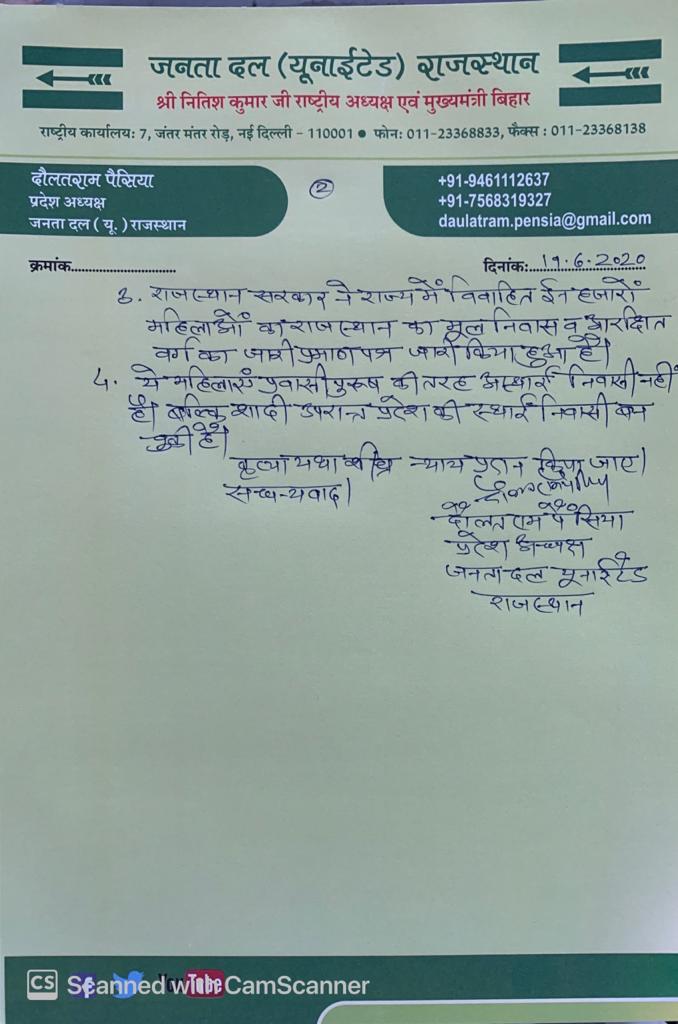 जनता दल (यूनाईटेड) राजस्थान
श्री नितिश कुमार जी राष्ट्रीय अध्यक्ष एवं मुख्यमंत्री बिहार
राष्ट्रीय कार्यालय: 7, जंतर मंतर रोड़, नई दिल्ली - 110001 ● फोन: 011-23368833, फैक्स : 011-23368138
दौलतराम पैसिया
प्रदेश अध्यक्ष
जनता दल ( यू. ) राजस्थान
2
+91-9461112637
+91-7568319327
daulatram.pensia@gmail.com
क्रमांक............................
दिनांक: 19.6.2020
3. राजस्थान सरकार ने राज्य में विवाहित ईन हजारों
महिलाओं का राजस्थान का मूल निवास व आरक्षित
वर्ग का जाती प्रमाण पत्र जारी किया हुआ है।
4. ये महिलाएं प्रवासी पुरूष की तरह अस्थाई निवासी नहीं
है। बल्कि शादी उपरान्त प्रदेश की स्थाई निवासी बन
चुकी है।
कृप्या यथा शीघ्र न्याय प्रदान किया जाए।
सधन्यवाद।
दौलतराम पैंसिया
प्रदेश अध्यक्ष
जनता दल यूनाईटेड
राजस्थान
CS Scanned with CamScanner
YouTube